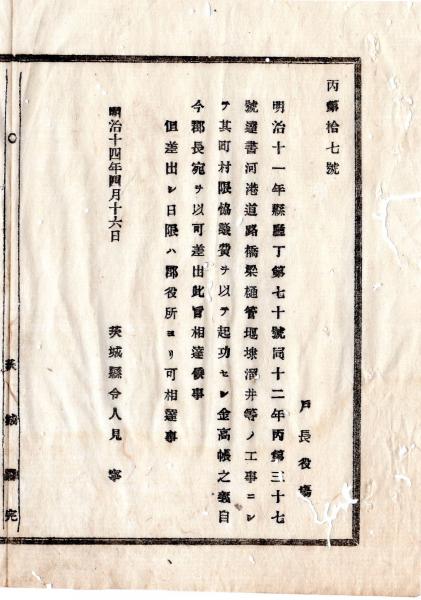 丙第拾七號
戸長役場
明治十一年縣廳丁第七十號同十二年丙第三十七
號達書河港道路橋梁樋管堰埭溜井等ノ工事ニシ
テ其町村限協議費ヲ以テ起功セシ金高帳之義自
今郡長宛ヲ以可差出此旨相達候事
但差出シ日限ハ郡役所ヨリ可相達事
明治十四年四月十六日
茨城縣令人見寧
茨城縣